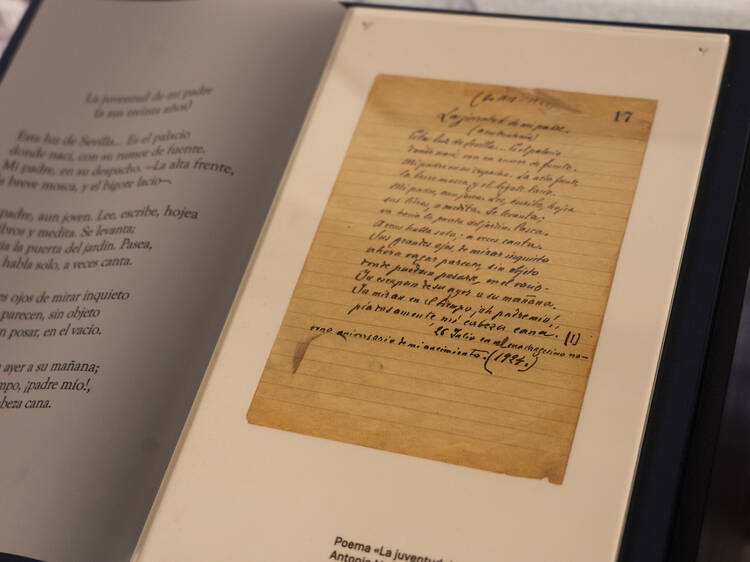 La juventud de mi padre
(a sus treinta años)
Esta luz de Sevilla... Es el palacio
donde nací, con su rumor de fuente.
Mi padre, en su despacho. —La alta frente,
a breve mosca, y el bigote lacio—.
padre, aun joven. Lee, escribe, hojea
ibros y medita. Se levanta;
ia la puerta del jardín. Pasea,
habla solo, a veces canta.
es ojos de mirar inquieto
parecen, sin objeto
n posar, en el vacío.
ayer a su mañana;
mpo, ¡padre mío!,
beza cana.
17
La juventud de mi padre.
Esta luz de Sevilla... Es el palacio
donde nací con su rumor de fuente.
Mi padre en su despacho. La alta frente
la breve mosca, y el bigote lacio.
Mi padre, aun joven. Lee, escribe, hojea
sus libros, medita. Se levanta;
va hacia la puerta del jardin. Pasea.
A veces habla solo, a veces canta.
Sus grandes ojos de mirar inquieto
ahora vagar parecen, sin objeto
donde puedan posarse, en el vacio.
Ya escapan de su ayer a su mañana.
Ya miran en el tiempo, ¡oh padre mio!
piadosamente mi cabeza cana. (1)
26 Julio en el cua no-
veno aniversario de mi nacimiento. (1924.)
Poema «La juventud
Antonio